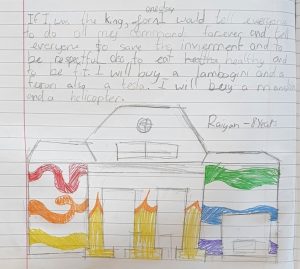 If I was the king, for one day I would tell everyone
to do all my command forever and tell
everyone to save the invierment and to
be respectful also to eat healthy and
to be fit. I will buy a lambogini and a
ferari also a tesla. I will buy a mansion
and a helicopter.
Raiyan - 8 Years